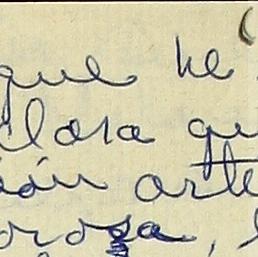 que he
clara qu
ión arte
orosa,